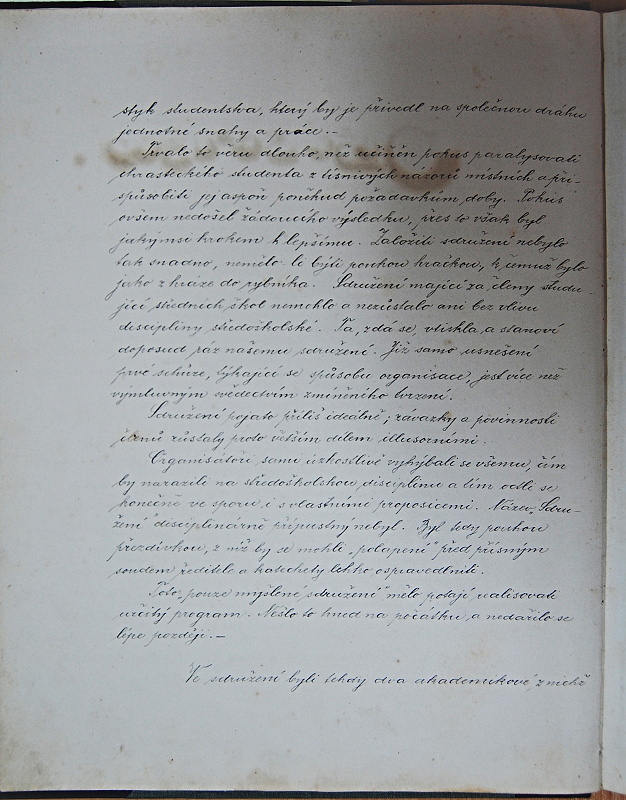 styk studentstva, který by je přivedl na společnou dráhu
jednotné snahy a práce. —
Trvalo to věru dlouho, než učiněn pokus paralysovati
chrasteckého studenta z tísnivých názorů místních a při-
spůsobiti jej aspoň poněkud požadavkům doby. Pokus
ovšem nedošel žádoucího výsledku, přes to však byl
jakýmsi krokem k lepšímu. Založiti sdružení nebylo
tak snadno, nemělo-li býti pouhou hračkou, k čemuž bylo
jako z hráze do rybníka. Sdružení mající za členy studu-
jící středních škol nemohlo a nezůstalo ani bez vlivu
disciplíny středoškolské. Ta, zdá se, vtiskla a stanoví
doposud ráz našemu sdružení. Již samo usnešení
prvé schůze, týkající se spůsobu organisace, jest více než
výmluvným svědectvím zmíněného tvrzení.
Sdružení pojato příliš ideálně; závazky a povinnosti
členů zůstaly proto větším dílem illusorními.
Organisátoři sami úzkostlivě vyhýbali se všemu, čím
by narazili na středoškolskou disciplinu a tím octli se
konečně ve sporu i s vlastními proposicemi. Název „Sdru-
žení" disciplinárně přípustný nebyl. Byl tedy pouhou
přezdívkou, z níž by se mohli „polapení" před přísným
soudem ředitele a katechety lehko ospravedlniti.
Toto „pouze myšlené sdružení" mělo potají realisovati
určitý program. Nešlo to hned na počátku a nedařilo se
lépe později. —
Ve sdružení byli tehdy dva akademikové, z nichž